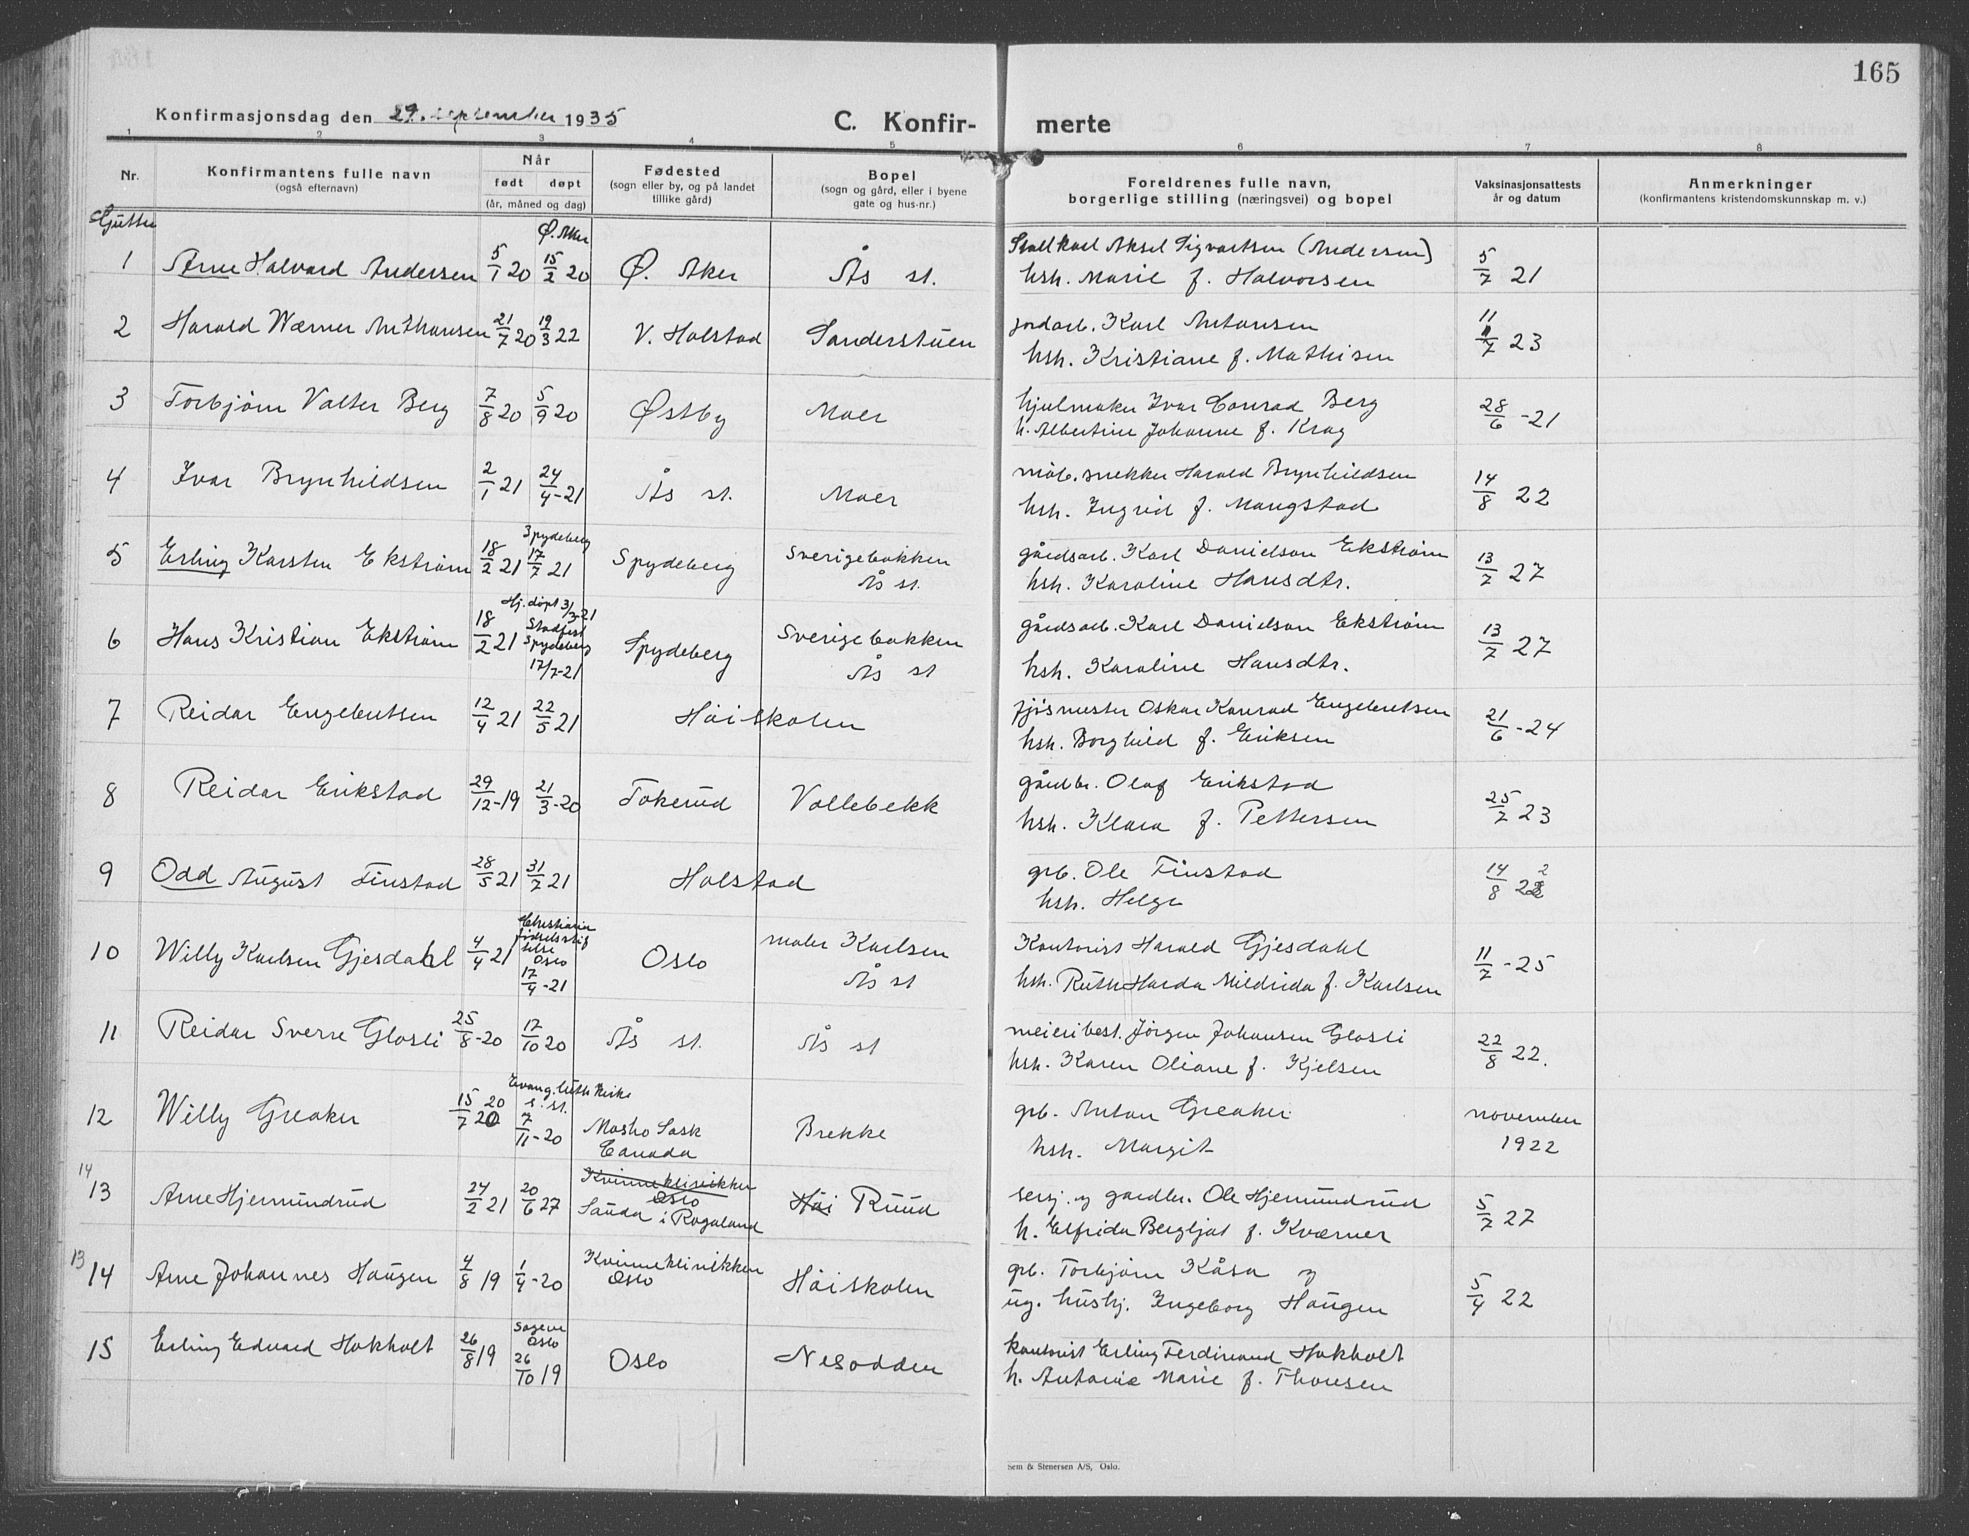 165
Konfirmasjonsdag den 29. september 1935
C. Konfir- merte
1 2 3 4 5 6 7 8
Nr.
Konfirmantens fulle navn
(også efternavn)
Når
født døpt
(år, måned og dag)
Fødested
(sogn eller by, og på landet
tillike gård)
Bopel
(sogn og gård, eller i byene
gate og hus-nr.)
Foreldrenes fulle navn,
borgerlige stilling (næringsvei) og bopel
Vaksinasjonsattests
år og datum
Anmerkninger
(konfirmantens kristendomskunnskap m. v.)
Gutter
1 Arne Halvard Andersen 5/1 20 Ø. Aker 15/2 20 Ø. Aker Ås st. Stallkarl Aksel Sigvartsen (Andersen)
hsh. Marie f. Halvorsen 5/7 21
2 Harald Wærner Anthonsen 21/7 20 19/3 22 V. Holstad Sanderstuen jordarb. Karl Antonsen
hsh. Kristiane f. Mathisen 11/7 23
3 Torbjørn Valter Berg 7/8 20 5/9 20 Østby Moer hjulmaker Ivar Conrad Berg
h. Albertine Johanne f. Krog 28/6 -21
4 Ivar Brynhildsen 2/1 21 24/4 -21 Ås st. Moer møb. snekker Harald Brynhildsen
hsh. Ingrid f. Mangstad 14/8 22
5 Erling Karsten Ekstrøm 18/2 21 Spydeberg 17/7 21 Spydeberg Sverigebakken
Ås st. gårdsarb. Karl Danielson Ekstrøm
hsh. Karoline Hansdtr. 13/7 27
6 Hans Kristian Ekstrøm 18/2 21 Hj. døpt 3/3-21
Stadfest
Spydeberg
17/7-21 Spydeberg Sverigebakken
Ås st gårdsarb. Karl Danielson Ekstrøm
hsh. Karoline Hansdtr. 13/7 27
7 Reidar Engebretsen 12/4 21 22/5 21 Høiskolen fjøsmester Oskar Konrad Engebretsen
hsh. Borghild f. Eriksen 21/6 -24
8 Reidar Erikstad 29/12 -19 21/3 -20 Tokerud Vollebekk gårdbr. Olaf Erikstad
hsh. Klara f. Pettersen 25/7 23
9 Odd August Finstad 28/5 21 31/7 21 Holstad grb. Ole Finstad
hsh. Helga 14/8 22
10 Willy Karlsen Gjesdahl 4/4 21 Christiania
fødselsstif
telse
Oslo
17/4 -21 Oslo maler Karlsen
Ås st Kontorist Harald Gjesdahl
hsh. Ruth Harda Mildrida f. Karlsen 11/7 -25
11 Reidar Sverre Glosli 25/8 -20 17/10 20 Ås st. Ås st meieribest. Jørgen Johansen Glosli
hsh. Karen Oliane f. Kjelsen 22/8 22.
12 Willy Greaker 15/7 20 20 Evang. luth kirke
s. st.
7/11 -20 Mosho Sask
Canada Brekke grb. Anton Greaker
hsh. Margit november
1922
14
13 Arne Hjermundrud 24/2 21 20/6 27 Kvinneklinikken
Oslo
Sauda i Rogaland Høi Ruud serj. og gardbr. Ole Hjemundrud
h. Elfrida Bergljot f. Kværner 5/7 27
13
14 Arne Johannes Haugen 4/8 19 1/4 -20 Kvinneklinikken
Oslo Høiskolen grb. Torbjørn Kåsa og
ug. hushj. Ingeborg Haugen 5/4 22
15 Erling Edvard Hokholt 26/8 19 Sagene
Oslo
26/10 19 Oslo Nesodden kontorist Erling Ferdinand Hokholt
h. Antonie Marie f. Thonsen
Sem & Stenersen A/S, Oslo.